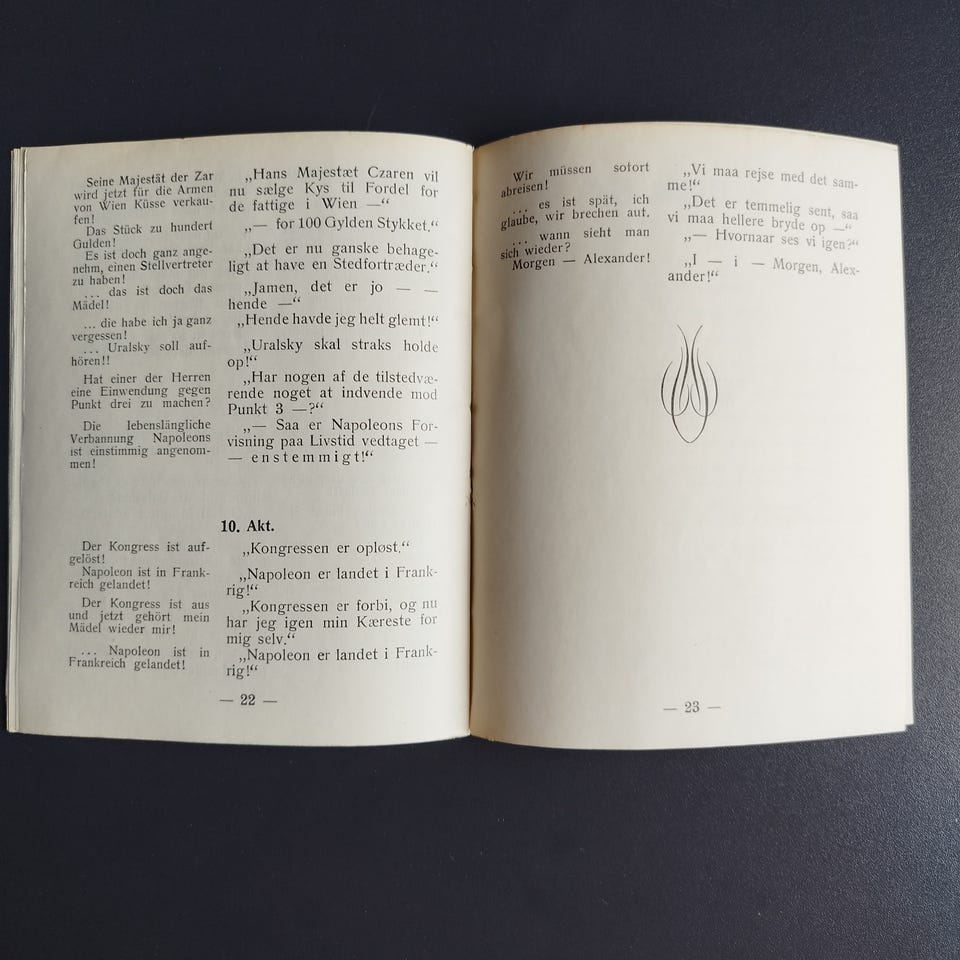 Seine Majestät der Zar
wird jetzt für die Armen
von Wien Küsse verkau-
fen!
Das Stück zu hundert
Gulden!
Es ist doch ganz ange-
nehm, einen Stellvertreter
zu haben!
... das ist doch das
Mädel!
... die habe ich ja ganz
vergessen!
... Uralsky soll auf-
hören!!
Hat einer der Herren
eine Einwendung gegen
Punkt drei zu machen?
Die lebenslängliche
Verbannung Napoleons
ist einstimmig angenom-
men!
„Hans Majestæt Czaren vil
nu sælge Kys til Fordel for
de fattige i Wien —“
„— for 100 Gylden Stykket.“
„Det er nu ganske behage-
ligt at have en Stedfortræder.“
„Jamen, det er jo — —
hende —“
„Hende havde jeg helt glemt!“
„Uralsky skal straks holde
op!“
„Har nogen af de tilstedvæ-
rende noget at indvende mod
Punkt 3 —?“
„— Saa er Napoleons For-
visning paa Livstid vedtaget —
— enstemmigt!“
10. Akt.
Der Kongress ist auf-
gelöst!
Napoleon ist in Frank-
reich gelandet!
Der Kongress ist aus
und jetzt gehört mein
Mädel wieder mir!
... Napoleon ist in
Frankreich gelandet!
„Kongressen er opløst.“
„Napoleon er landet i Frank-
rig!“
„Kongressen er forbi, og nu
har jeg igen min Kæreste for
mig selv.“
„Napoleon er landet i Frank-
rig!“
— 22 —
Wir müssen sofort
abreisen!
... es ist spät, ich
glaube, wir brechen auf.
... wann sieht man
sich wieder?
Morgen — Alexander!
„Vi maa rejse med det sam-
me!“
„Det er temmelig sent, saa
vi maa hellere bryde op —“
„— Hvornaar ses vi igen?“
„I — i — Morgen, Alex-
ander!“
— 23 —